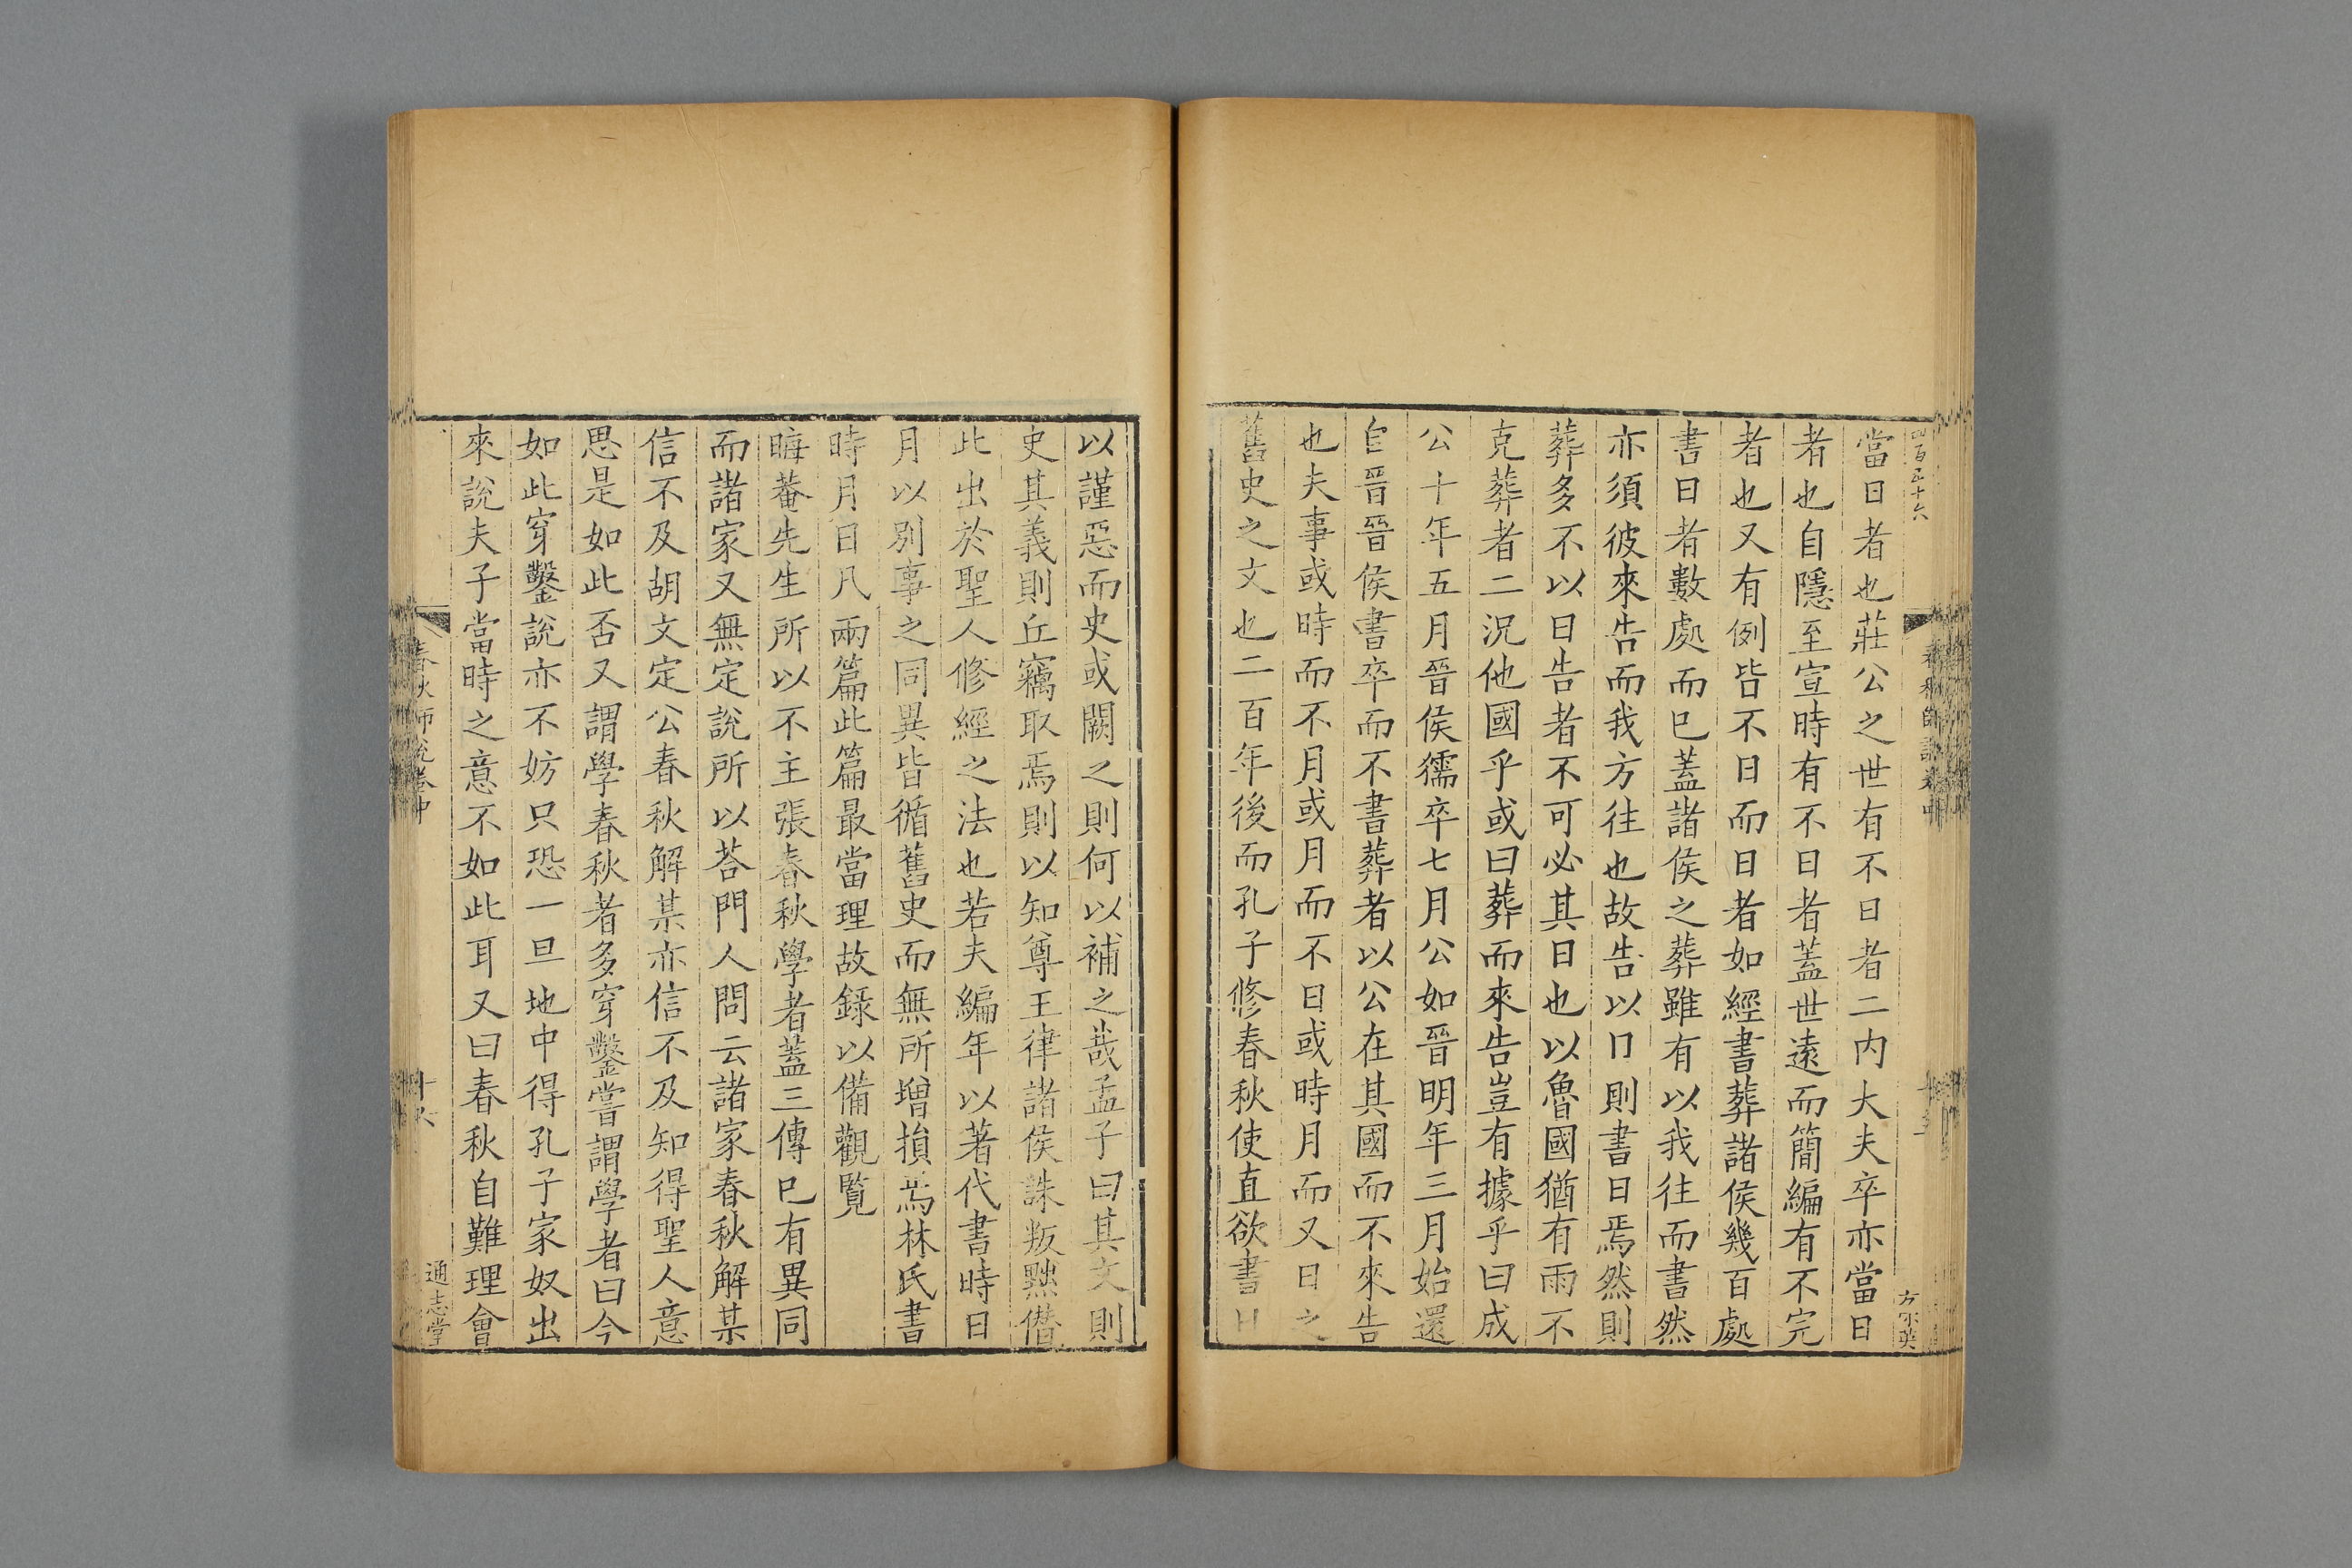 當日者也莊公之世有不日者二内大夫卒亦當日
者也自隱至宣時有不日者蓋世遠而簡編有不完
者也又有例皆不日而日者如經書葬諸侯幾百處
書日者數處而已蓋諸侯之葬雖有以我往而書然
亦須彼來告而我方往也故告以日則書日焉然則
葬多不以日告者不可必其日也以魯國猶有雨不
克葬者二況他國乎或曰葬而來告豈有據乎曰成
公十年五月晉侯獳卒七月公如晉明年三月始還
自晉晉侯書卒而不書葬者以公在其國而不來告
也夫事或時而不月或月而不日或時月而又日之
舊史之文也二百年後而孔子修春秋使直欲書日
以謹惡而史或闕之則何以補之哉孟子曰其文則
史其義則丘竊取焉則以知尊王律諸侯誅叛黜僭
此出於聖人修經之法也若夫編年以著代書時日
月以别事之同異皆循舊史而無所增損焉林氏書
時月日凡兩篇此篇最當理故録以備觀覽
晦菴先生所以不主張春秋學者蓋三傳已有異同
而諸家又無定說所以荅門人問云諸家春秋解某
信不及胡文定公春秋解某亦信不及知得聖人意
思是如此否又謂學春秋者多穿鑿嘗謂學者曰今
如此穿鑿說亦不妨只恐一旦地中得孔子家奴出
來說夫子當時之意不如此耳又曰春秋自難理會
春秋師說卷中
通志堂